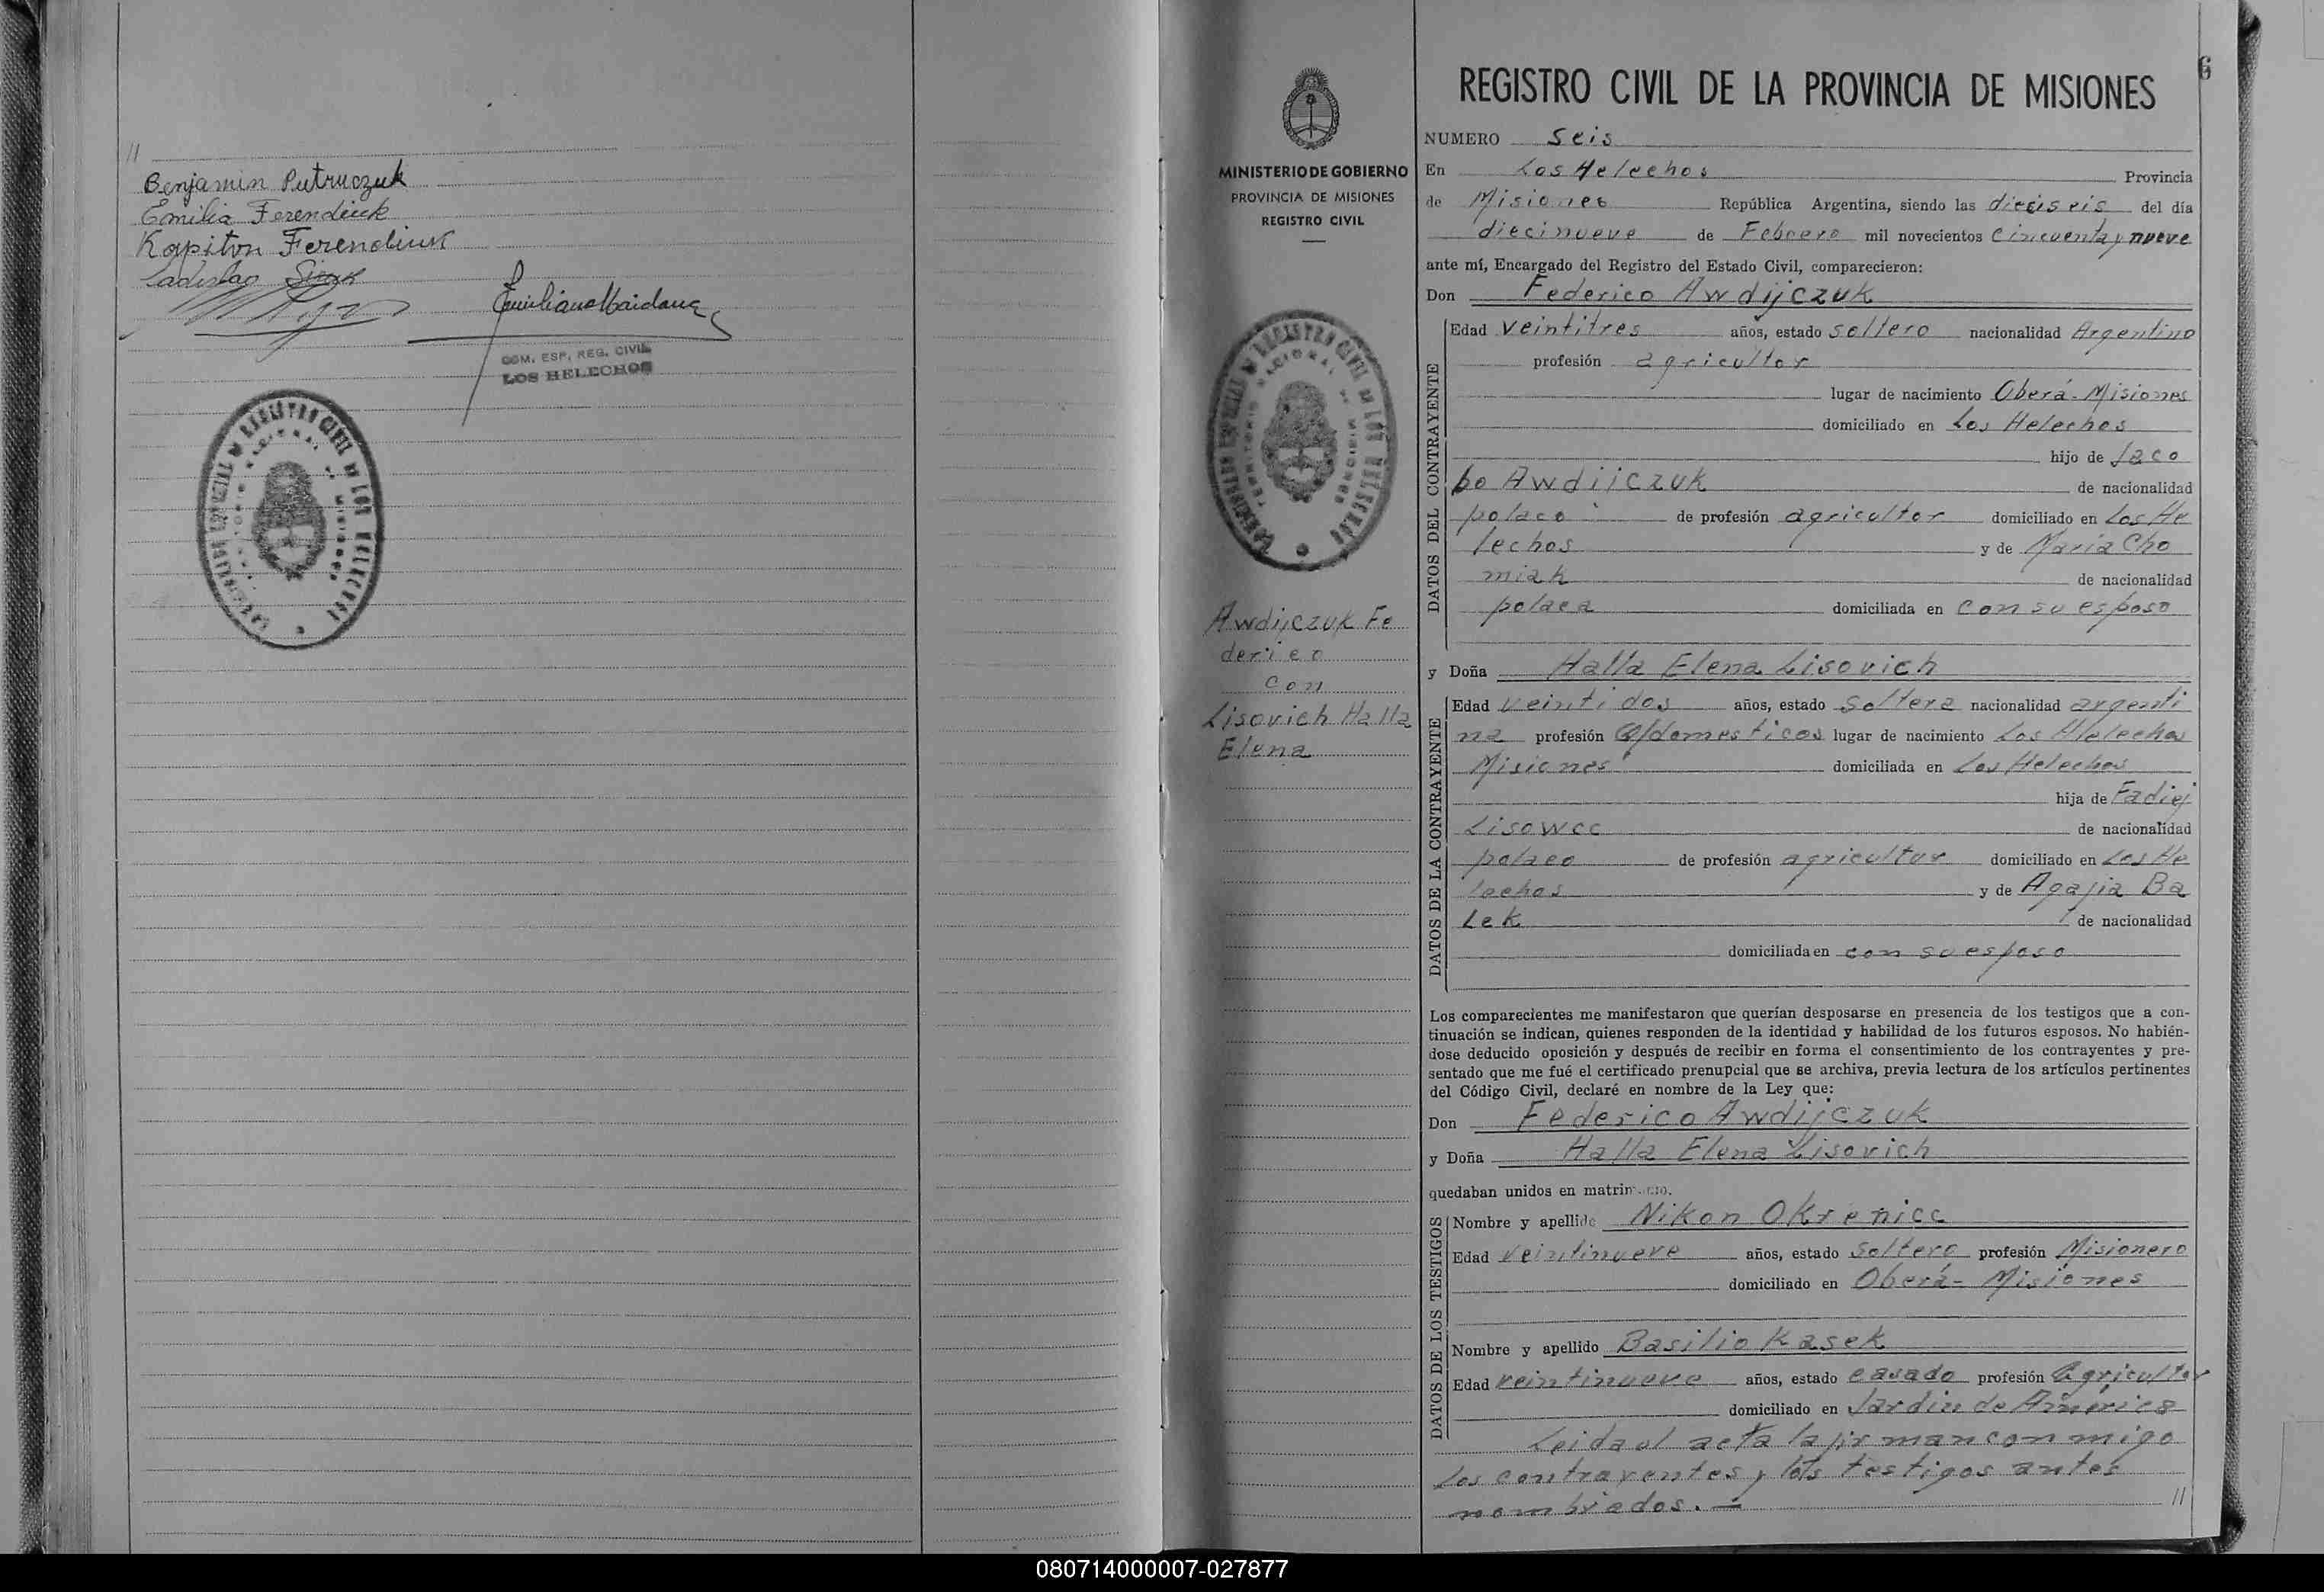 //
Benjamin Putruczuk
Emilia Ferendiuk
Kapiton Ferendiuk
Ladislao
Emiliano Maidana
COM. ESP. REG. CIVIL
LOS HELECHOS
6
MINISTERIO DE GOBIERNO
PROVINCIA DE MISIONES
REGISTRO CIVIL
Awdijczuk Fe
derico
con
Lisovich Halla
Elena
REGISTRO CIVIL DE LA PROVINCIA DE MISIONES
NUMERO seis
En Los Helechos Provincia
de Misiones República Argentina, siendo las dieciseis del día
diecinueve de Febrero mil novecientos cincuenta y nueve
ante mí, Encargado del Registro del Estado Civil, comparecieron:
Don Federico Awdijczuk
DATOS DEL CONTRAYENTE
Edad veintitres años, estado soltero nacionalidad Argentino
profesión agricultor
lugar de nacimiento Oberá-Misiones
domiciliado en Los Helechos
hijo de Jaco
bo Awdijczuk de nacionalidad
polaco de profesión agricultor domiciliado en Los He
lechos y de María Cho
miak de nacionalidad
polaca domiciliada en con su esposo
y Doña Halla Elena Lisovich
DATOS DE LA CONTRAYENTE
Edad veintidos años, estado soltera nacionalidad argenti
na profesión Q/domesticos lugar de nacimiento Los Helechos
Misiones domiciliada en Los Helechos
hija de Fadiej
Lisowcc de nacionalidad
polaco de profesión agricultor domiciliado en Los He
lechos y de Agafia Ba
Lek de nacionalidad
domiciliada en con su esposo
Los comparecientes me manifestaron que querían desposarse en presencia de los testigos que a con-
tinuación se indican, quienes responden de la identidad y habilidad de los futuros esposos. No habién-
dose deducido oposición y después de recibir en forma el consentimiento de los contrayentes y pre-
sentado que me fué el certificado prenupcial que se archiva, previa lectura de los artículos pertinentes
del Código Civil, declaré en nombre de la Ley que:
Don Federico Awdijczuk
y Doña Halla Elena Lisovich
quedaban unidos en matrimonio.
DATOS DE LOS TESTIGOS
Nombre y apellido Nikon Okrenicc
Edad veintinueve años, estado soltero profesión Misionero
domiciliado en Oberá- Misiones
Nombre y apellido Basilio Kasek
Edad veintinueve años, estado casado profesión Agricultor
domiciliado en Jardin de América
Leida el acta la firman conmigo
los contrayentes y los testigos antes
nombrados.- //
080714000007-027877